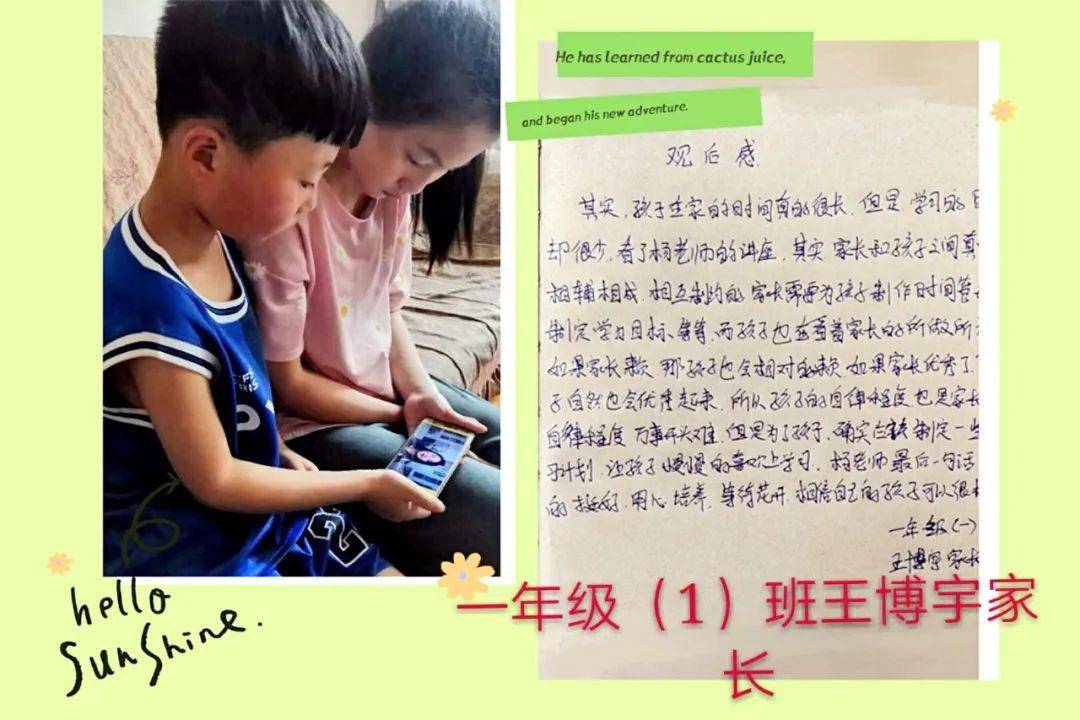 He has learned from cactus juice,
and began his new adventure.
观后感
其实,孩子在家的时间真的很长,但是,学习的
却很少,看了杨老师的讲座,其实家长和孩子之间真
相辅相成,相互制约的,家长需要为孩子制作时间管
制定学习目标,等等,而孩子也在看着家长的所做所
如果家长懒,那孩子也会相对的懒,如果家长优秀了
子自然也会优秀起来,所以孩子的自律程度也是家长
自律程度,万事开头难,但是为了孩子,确实应该制定一些
习计划,让孩子慢慢的喜欢上学习,杨老师最后一句话
的挺好,用心培养,等待花开,相信自己的孩子可以很
一年级(一)
王博宇家长
hello
sunshine.
一年级(1)班王博宇家
长